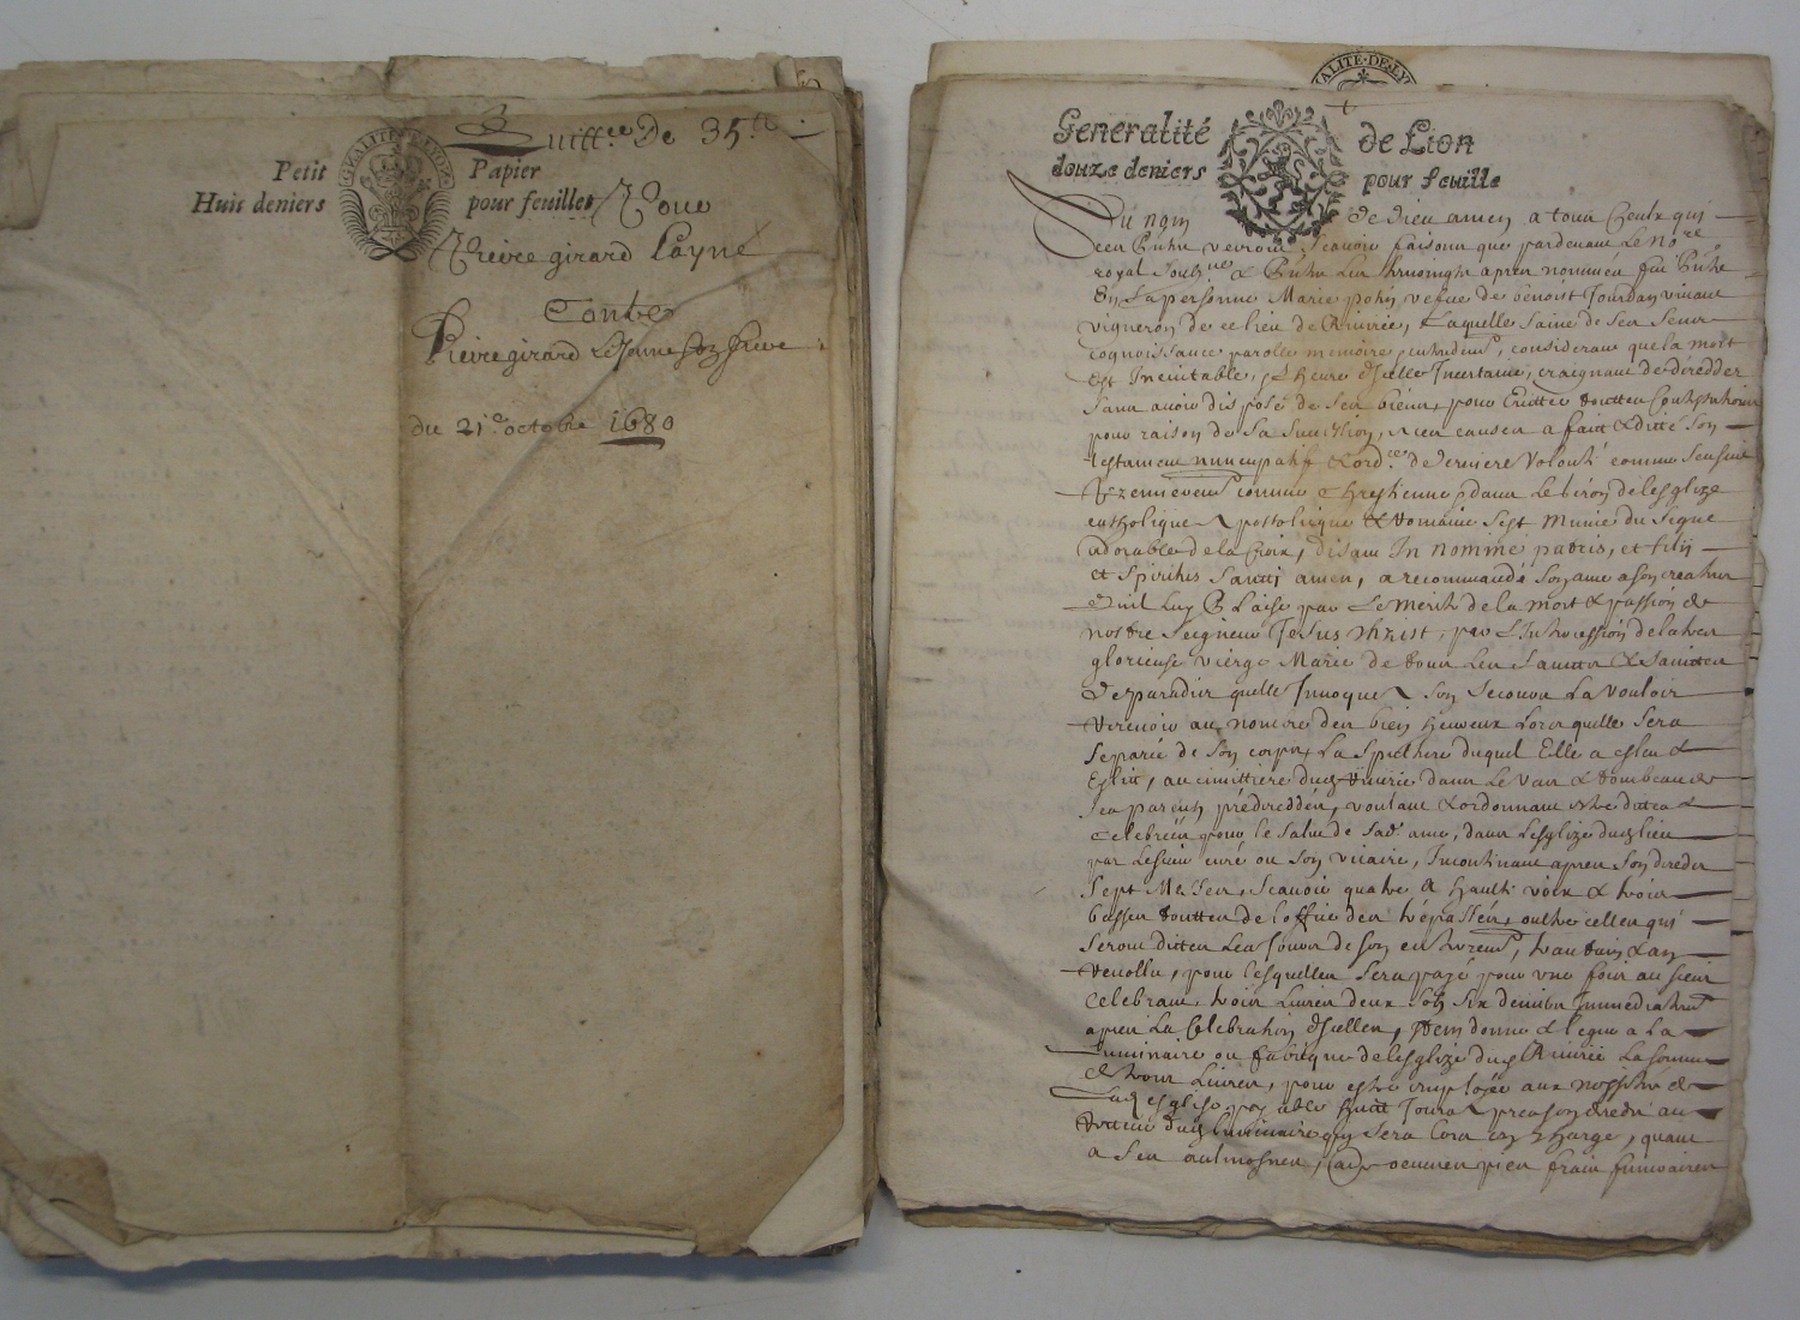 Quitt.ce De 35 tt
Petit Papier
Huit deniers pour feuilles
GENALITE
Pour
Pierre girard L'ayné
Contre
Pierre girard Le Jeune son frere
du 21.e octobre 1680
ALITE·DE·LY
Generalité de Lion
douze deniers pour feuille
Au nom de dieu amen a tous Ceulx qui
verront Scavoir faisons que pardevant Le no.re
royal soubz.né & apres nommés fut
En La personne Marie vefve de benoist Jourdan vivant
vigneron de ce lieu de Laquelle saine de ses sens
cognoissance parolle memoire considerant que la mort
est Inevitable, & L'heure d'Icelle Incertaine, craignant de dècedder
sans avoir disposé de ses biens, pour Evitter touttes
pour raison de sa a fait & ditté son
testament nuncupatif & ord.ce de derniere volonté comme sensuit
comme Chrestienne dans Le giron de lesglize
catholique Apostolicque & Romaine sest Munie du signe
adorable de la Croix, disant In nomine patris, et filij
et spiritus sancti amen, a recommandé son ame a son createur
quil Luy Plaise par Le merite de la mort & passion de
nostre seigneur Jesus Christ, par L'Intercession de la tres
glorieuse vierge Marie de tous Les saincts & sainctes
de paradis quelle Invoque A son secours La vouloir
recevoir au nombre des bien heureux Lors quelle sera
separée de son corps, La duquel Elle a esleu &
au cimittiere dans Le vas & tombeau de
ses parents prédeceddés, voulant & ordonnant estre dittes &
celebrées pour le salut de sad. ame, dans Lesglize dud. lieu
par Le sieur curé ou son vicaire, Incontinant apres son deceds
sept Messes, scavoir quatre a haulte voix & trois
basses touttes de loffice des trépassés, oultre celles qui
seront dittes Les jours de son & an
revollu, pour lesquelles sera payé pour une fois au sieur
celebrant, trois Livres deux solz six deniers Immediatem.t
apres La Celebration d'Icelles, Item donne & legue a La
Luminaire ou fabrique de lesglize dud. La somme
de trois Livres, pour estre employée aux de
Lad. esglise payable huict Jours Apres son deceds au
dud. Luminaire qui sera Lors en Charge, quant
a ses aulmosnes, oeuvres pies frais funeraires